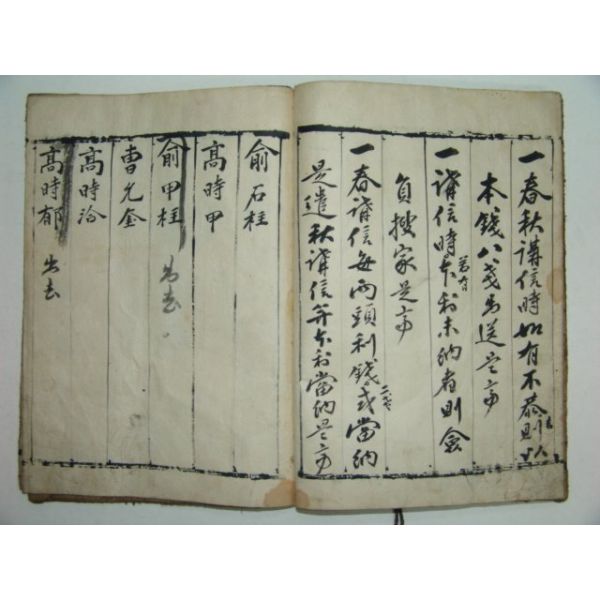 一春秋講信時如有不恭則以
本錢八戔出送是齊
一講信時本利未納者則僉
負搜家是齊
一春講信每兩頭利錢戔當納
是遣秋講信并本利當納是齊
俞石柱
高時甲
俞甲柱 出去
曺允金
高時洽
高時郁 出去